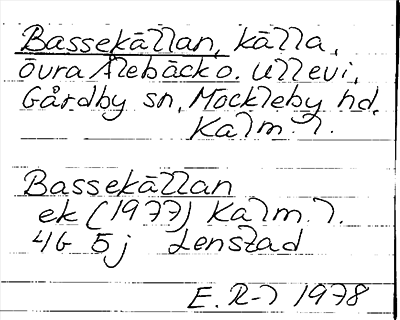 Bassekällan, källa,
övra Ålebäck o. Ullevi,
Gårdby sn, Möckleby hd,
Kalm. l.
Bassekällan
ek (1977) Kalm. l.
4G 5j Lenstad
E. R-l 1978